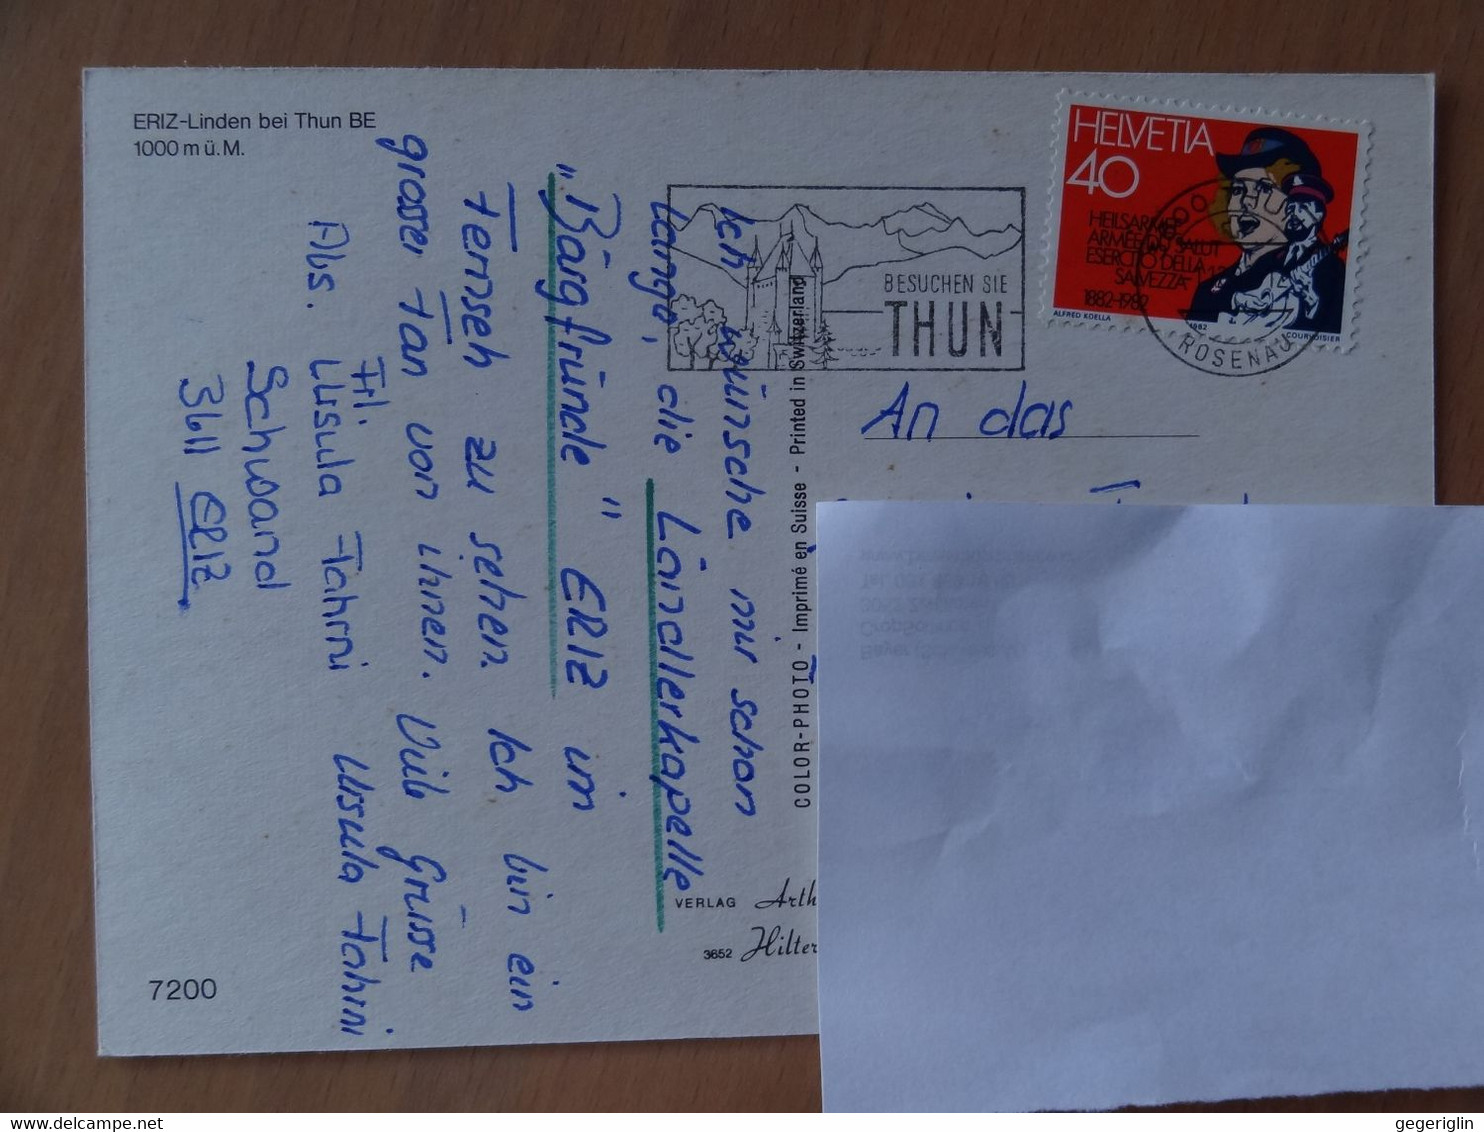 ERIZ-Linden bei Thun BE
1000 m ü. M.
HELVETIA
40
HEILSARMEE
ARMÉE DU SALUT
ESERCITO DELLA
SALVEZZA
1882-1982
ALFRED KOELLA
1982
COURVOISIER
ROSENAU
BESUCHEN SIE
THUN
An das
Ich wünsche mir schon
lange, die Ländlerkapelle
„Bärgfründe" ERIZ im
Fernseh zu sehen. Ich bin ein
grosser Fan von ihnen. Viele Grüsse
Ursula Fahrni
Abs. Frl
Ursula Fahrni
Schwand
3611 ERIZ
COLOR-PHOTO - Imprimé en Suisse - Printed in Switzerland
VERLAG Arth
3652 Hilter
7200
gegeriglin